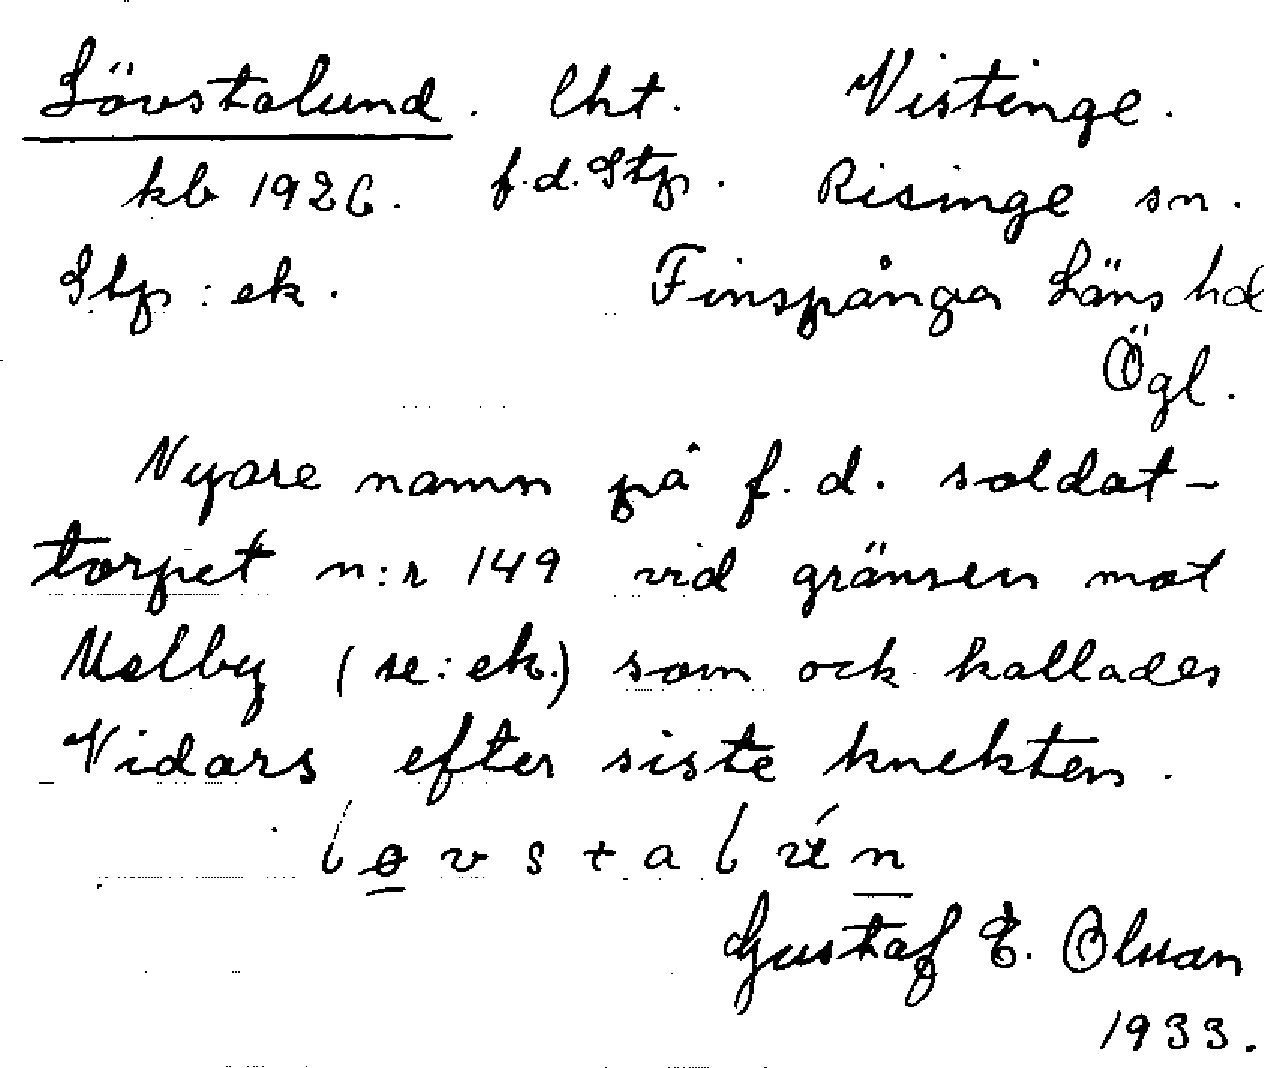 Lövstalund. lht. Vistinge.
kb 1926. f.d. Stp. Risinge sn.
Stp: ek. Finspånga Läns hd
Ögl.
Nyare namn på f.d. soldat-
torpet n:r 149 vid gränsen mot
Melby (se: ek.) som ock kallades
Vidars efter siste knekten.
Gustaf E. Olsson
1933.